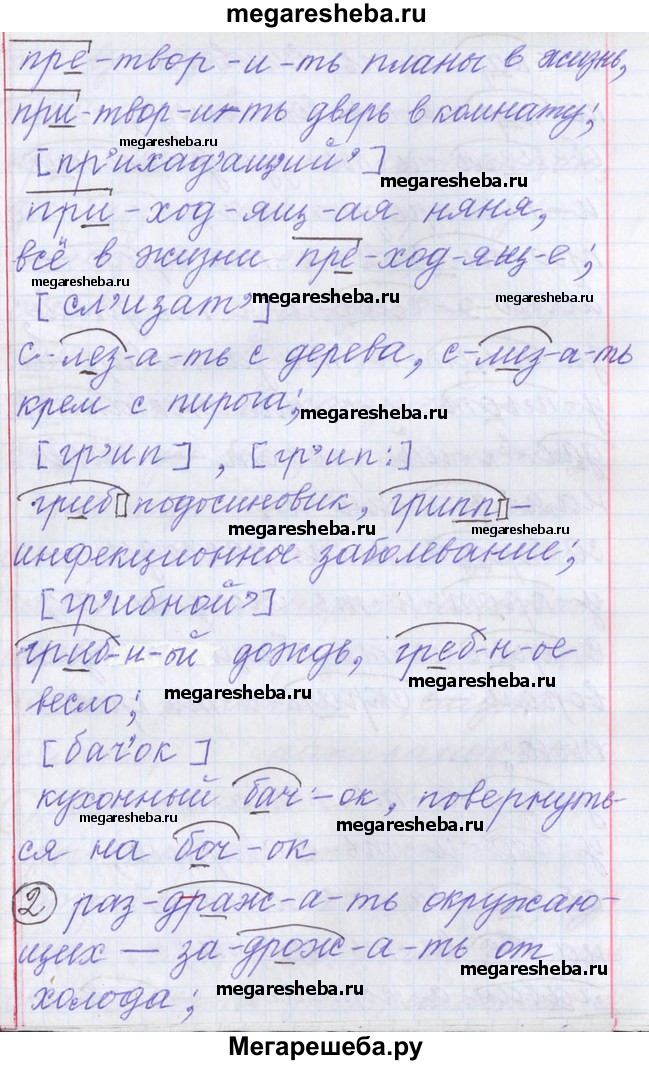 megaresheba.ru
пре-твор-и-ть планы в жизнь,
megaresheba.ru
megaresheba.ru
при-твор-и-ть дверь в комнату;
megaresheba.ru
[пр'ихад'ащий']
megaresheba.ru
при-ход-ящ-ая няня,
всё в жизни пре-ход-ящ-е;
megaresheba.ru
megaresheba.ru
[сл'изат']
с-лез-а-ть с дерева, с-лиз-а-ть
крем с пирога;
megaresheba.ru
[гр'ип], [гр'ип:]
гриб подосиновик, грипп -
megaresheba.ru
megaresheba.ru
инфекционное заболевание;
[гр'ибной']
гриб-н-ой дождь, греб-н-ое
весло;
megaresheba.ru
megaresheba.ru
[бач'ок]
кухонный бач-ок, повернуть-
megaresheba.ru
megaresheba.ru
ся на боч-ок
2 раз-драж-а-ть окружаю-
щих — за-дрож-а-ть от
megaresheba.ru
холода;
megaresheba.ru
Мегарешеба.ру